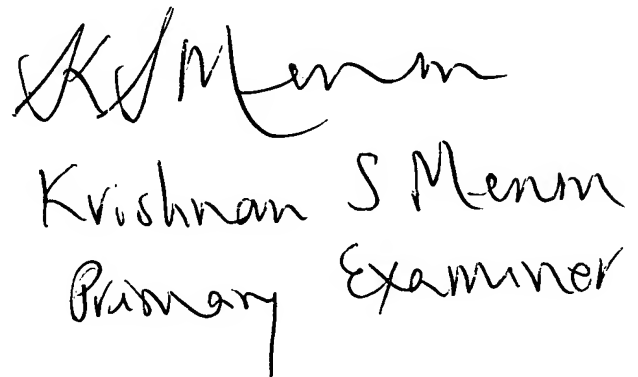 KSMenon
Krishnan S Menon
Primary Examiner